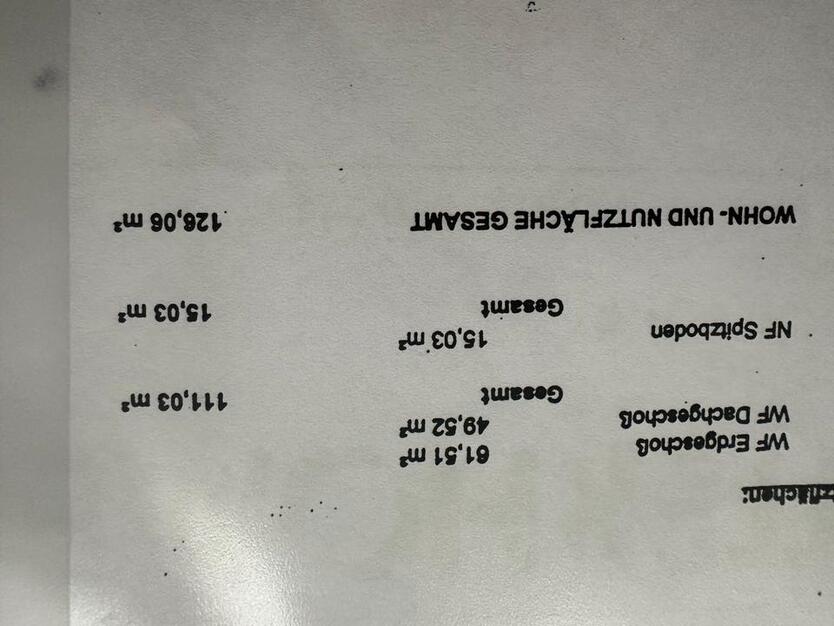 tzflächen:
WF Erdgeschoß 61,51 m²
WF Dachgeschoß 49,52 m²
Gesamt 111,03 m²
NF Spitzboden 15,03 m²
Gesamt 15,03 m²
WOHN- UND NUTZFLÄCHE GESAMT 126,06 m²